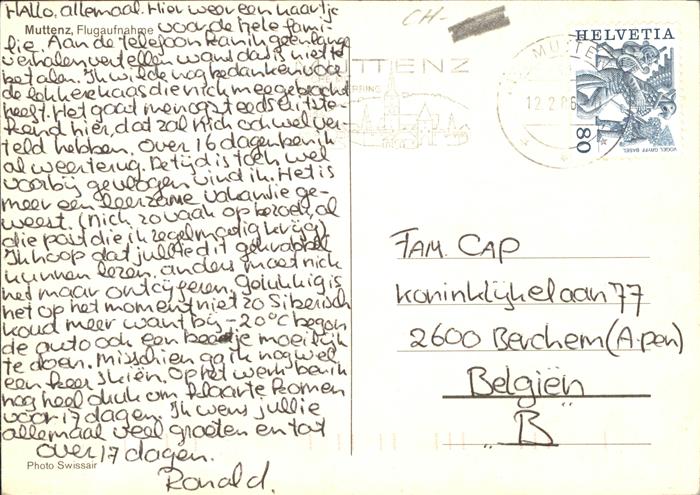 Hallo, allemaal. Hier weer een kaartje
Muttenz, Flugaufnahme
voor de hele fami-
lie. Aan de telefoon kan ik geen lange
verhalen vertellen want das is niet te
betalen. Ik wilde nog bedanken voor
de lekkere kaas die nick meegebracht
heeft. Het gaat me nog steeds uitste-
kend hier, dat zal nick ook wel ver-
teld hebben. Over 16 dagen ben ik
al weer terug. De tijd is toch wel
voorbij gevlogen vind ik. Het is
meer een leerzame vakantie ge-
weest. (Nick zo vaak op bezoek, al
die post die ik regelmatig krijg)
Ik hoop dat jullie dit gekrabbel
kunnen lezen, anders moet nick
het maar ontcijferen. Gelukkig is
het op het moment niet zo Siberisch
koud meer want bij -20°C begon
de auto ook een beetje moeilijk
te doen. Misschien ga ik nog wel
een keer skiën. Op het werk ben ik
nog heel druk om klaar te komen
voor 17 dagen. Ik wens jullie
allemaal veel groeten en tot
over 17 dagen.
Photo Swissair
Ronald.
CH-
MUTTENZ
MUTTENZ
12.2.86
HELVETIA
80
VOGEL GRYFF BASEL
FAM. CAP
Koninklijkelaan 77
2600 Berchem (A.pen)
Belgiën
"B"